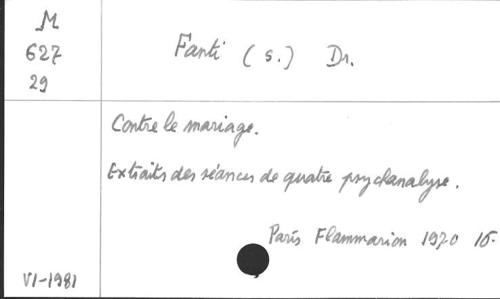 M
627
29
Fanti (S.) Dr.
Contre le mariage.
Extraits des séances de quatre psychanalyse.
Paris Flammarion 1970 16.
VI-1981